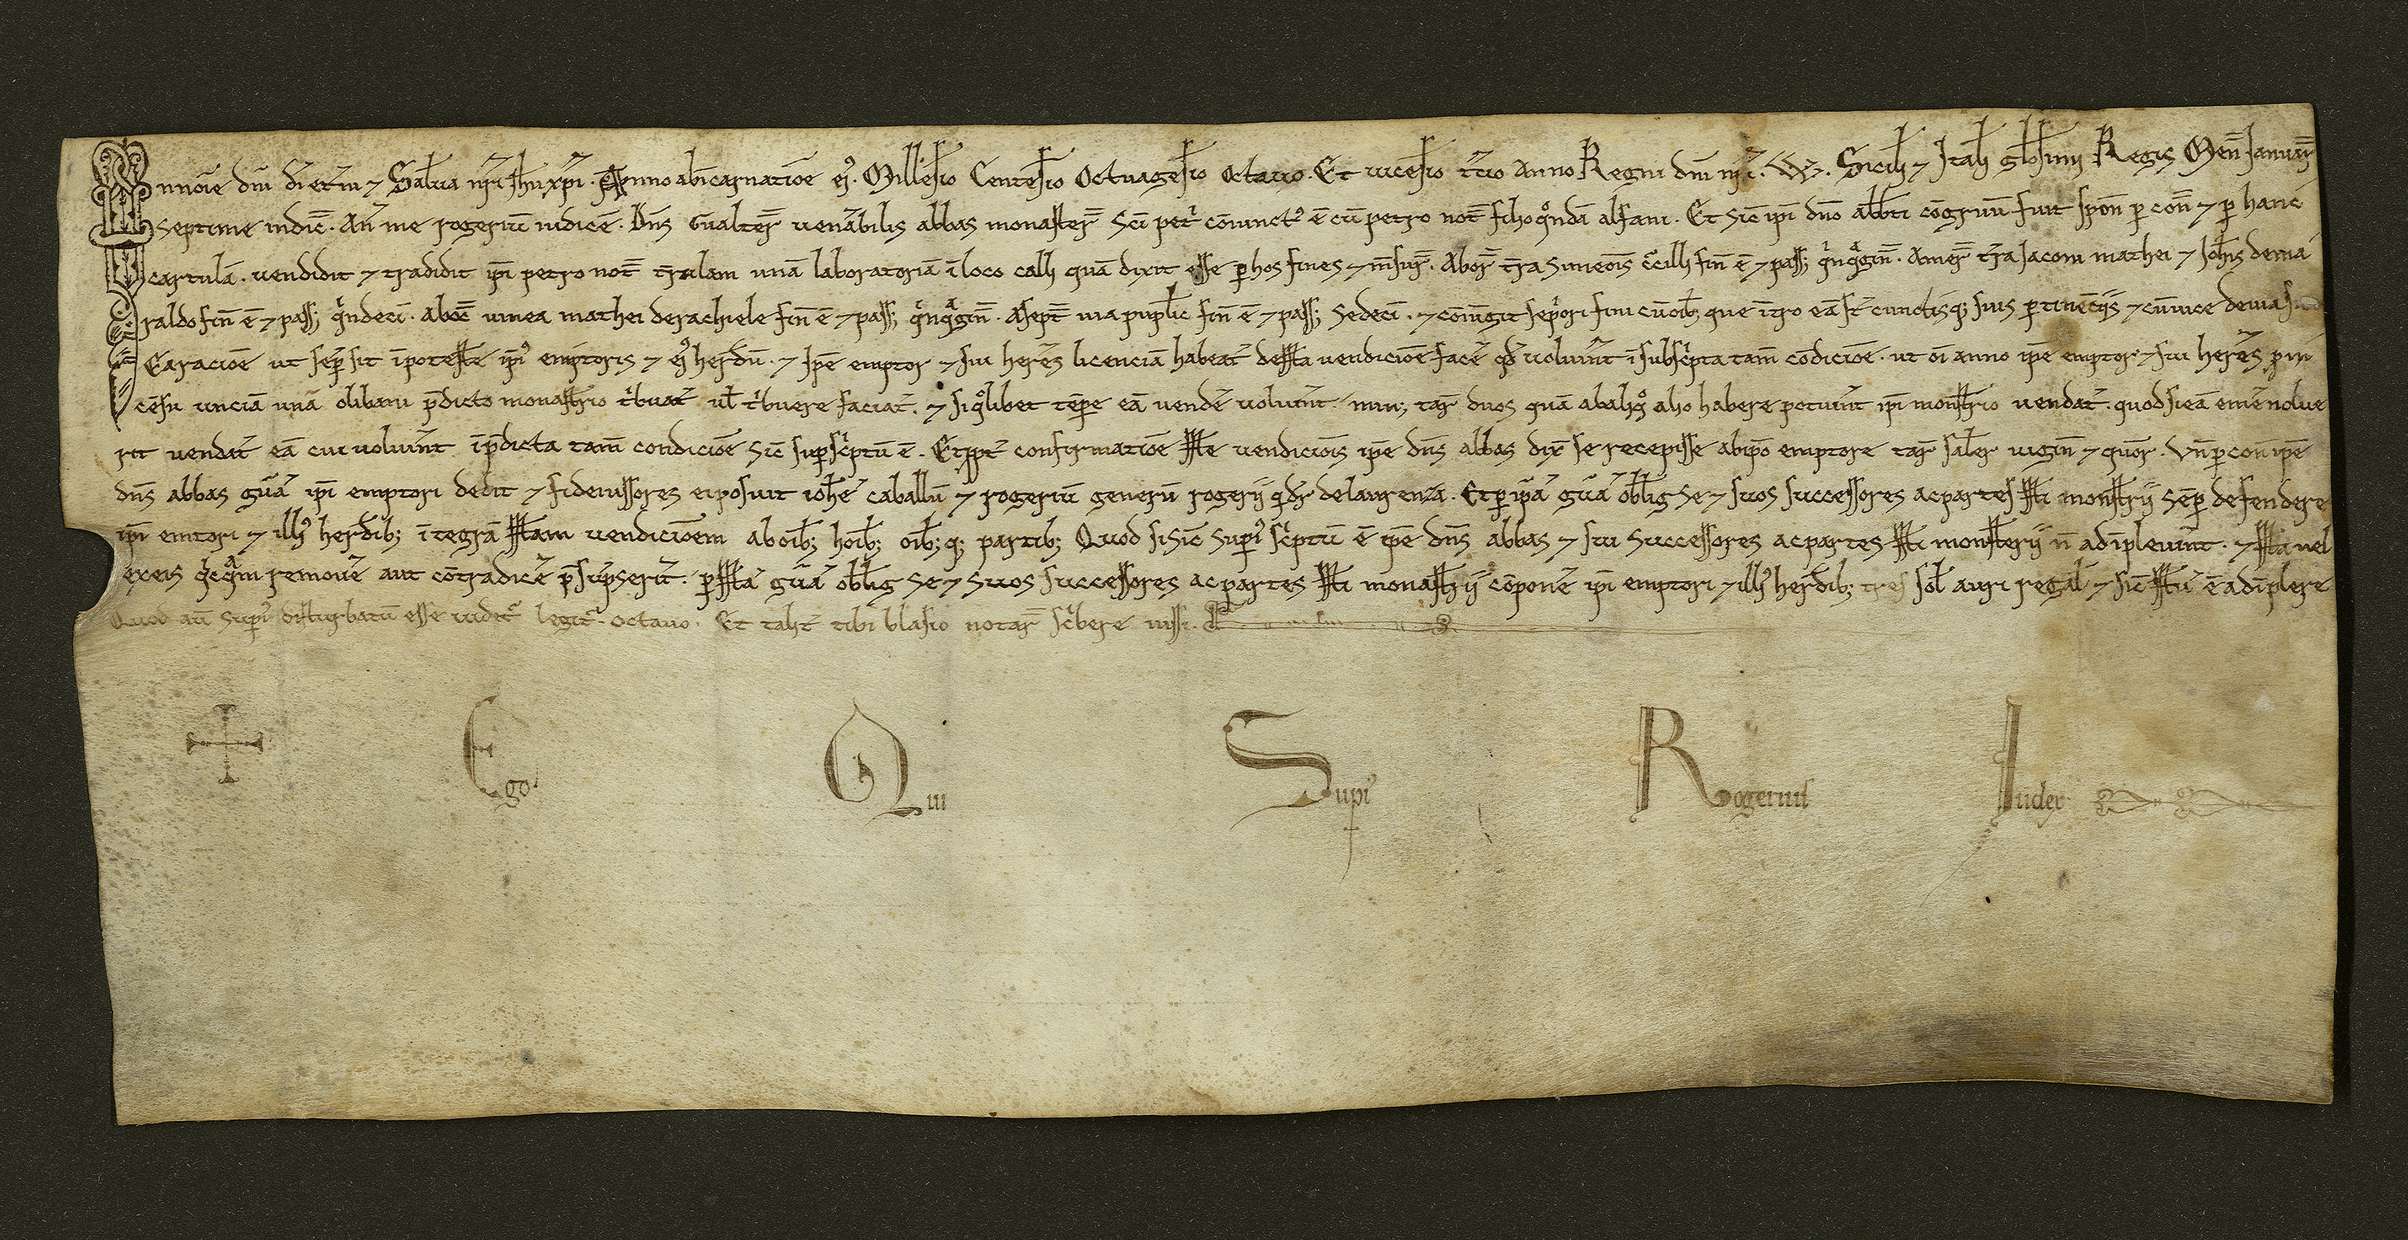 In noīe dn̄i dī et̄ni ⁊ Saluā nr̄i Jhū xp̄i. Anno ab īcarnatiōe ej᾽. Millesīo Centesīo Octuagesīo octauo. Et uicesīo t̄cio Anno Regni dn̄i nr̄i. W. Sicil̄ ⁊ Ital̄ gl̄osimi Regis Men̄ Januar̄
septime indic̄. An̄ me rogeriū iudicē. Dn̄s Gualter̄ uenābilis abbas monaster̄ Sc̄i pet̄ cōiunct᾽ ē cū petro not̄ filio qōndā alfani. Et sic ip̄i dn̄o abb̄ti cōgruū fuit spon̄ p con̄ ⁊ p hanc
cartulā. uendidit ⁊ tradidit ip̄i petro not̄ tr̄ulam unā laboratoriā ī loco calli quā dixit esse p hos fines ⁊ m̄sur̄. Ab or̄ tr̄a Simeōis fin̄ ē ⁊ pass; qⁱnqᵃgin̄. A mer̄ tr̄a Jaconi mathei ⁊ Joh̄is de ma
raldo fin̄ ē ⁊ pass; qⁱndeci. Ab oc̄c uinea mathei de rachiele fin̄ ē ⁊ pass; qⁱnqᵃgin̄. A sept̄ uia puplic̄ fin̄ ē ⁊ pass; Sedeci. ⁊ cōiūgit sep̄ori fini cū oīb; que ītro eā st̄ cunctisq; suis ptinēciis ⁊ cū uice de uias.
Ea racioē ut sep̄ sit ī potestate ip̄i᾽ emptoris ⁊ ej᾽ herdū. ⁊ Ip̄e emptor ⁊ sui hered̄es licenciā habeat̄ de ista uendicioē facē qd̄ uoluīt ī subscⁱpta tam̄ cōdicioē. ut oī anno ip̄e emptor ⁊ sui hered̄es p īn
cēsu unciā unā olibani p̄dicto monasterio tⁱbuat̄ ul̄ tⁱbuere faciat̄. ⁊ si qōlibet tēpe eā uendē uoluīnt. tar̄ duos quā ab aliqᵒ alio habere potuīnt ip̄i monstrio uendat̄. quod si eā emē nolue
rit uendat̄ eā cui uoluīnt īp̄dicta tam̄ condicioē sic sup scⁱptū ē. Et pp̄t confirmatioē iste uendiciōis ip̄e dn̄s abbas dix̄ se recepisse ab ip̄o emptore tar̄ sal̄er uigin̄ ⁊ quor̄. Vn̄ p con̄ ip̄e
dn̄s abbas guā ip̄i emptori dedit ⁊ fideiussores ei posuit ioh̄e caballū ⁊ rogeriū generū rogerij de laurenza. Et p ip̄ā guā obl̄ig se ⁊ suos successores ac partes isti monstrij Sēp defendere
ip̄i emtori ⁊ illi᾽ herdib; ītegrā istam uendicioēm ab oīb; hoīb; oīb; q; partib; Quod si sic supⁱ scⁱptū ē ip̄e dn̄s abbas ⁊ sui Successores ac partes isti monsterij n̄ adīpleuīnt. ⁊ ista uel
ex eis qⁱcqᵃm remouē aut cōtradicē p̄sūpserīt. p ista guā obl̄ig se ⁊ Suos successores ac partes isti monastrij cōponē ip̄i emptori ⁊ illi᾽ herdib; tres sol̄ auri regal̄ ⁊ sic istū ē adīplere
Quod aū supⁱ disturbatū esse uidet̄ legit̄. octauo. Et talit̄ tibi blasio notar̄ scⁱbere iussi.
+ Ego Qui Supⁱ Rogerius Iudex